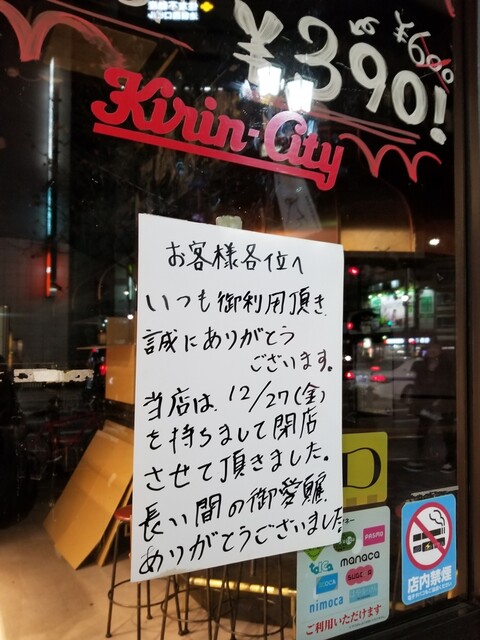 ¥390!
¥600
Kirin-City
お客様各位へ
いつも御利用頂き
誠にありがとう
ございます。
当店は、12/27(金)
を持ちまして閉店
させて頂きました。
長い間の御愛顧
ありがとうございました
D
PASMO
toica
manaca
SUGOCA
nimoca
ご利用いただけます
店内禁煙